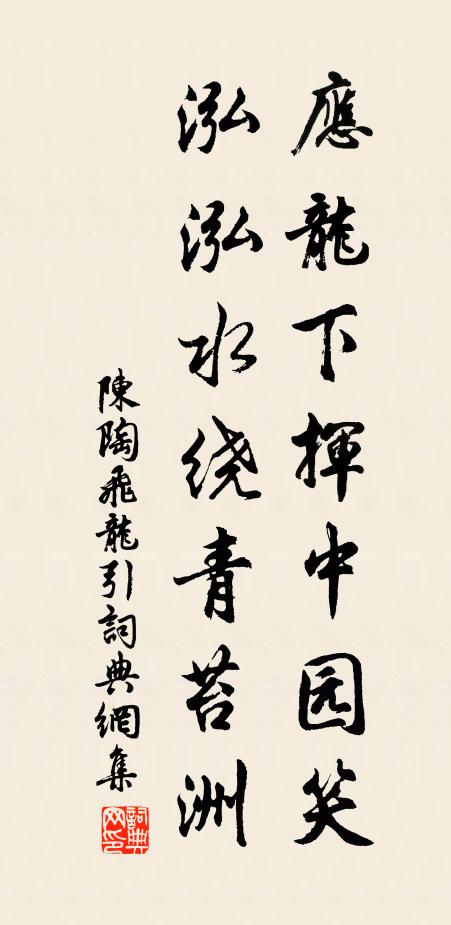 應龍下揮中园笑
泓泓水绕青苔洲
陳陶飛龍引詞典網集
詞典网印